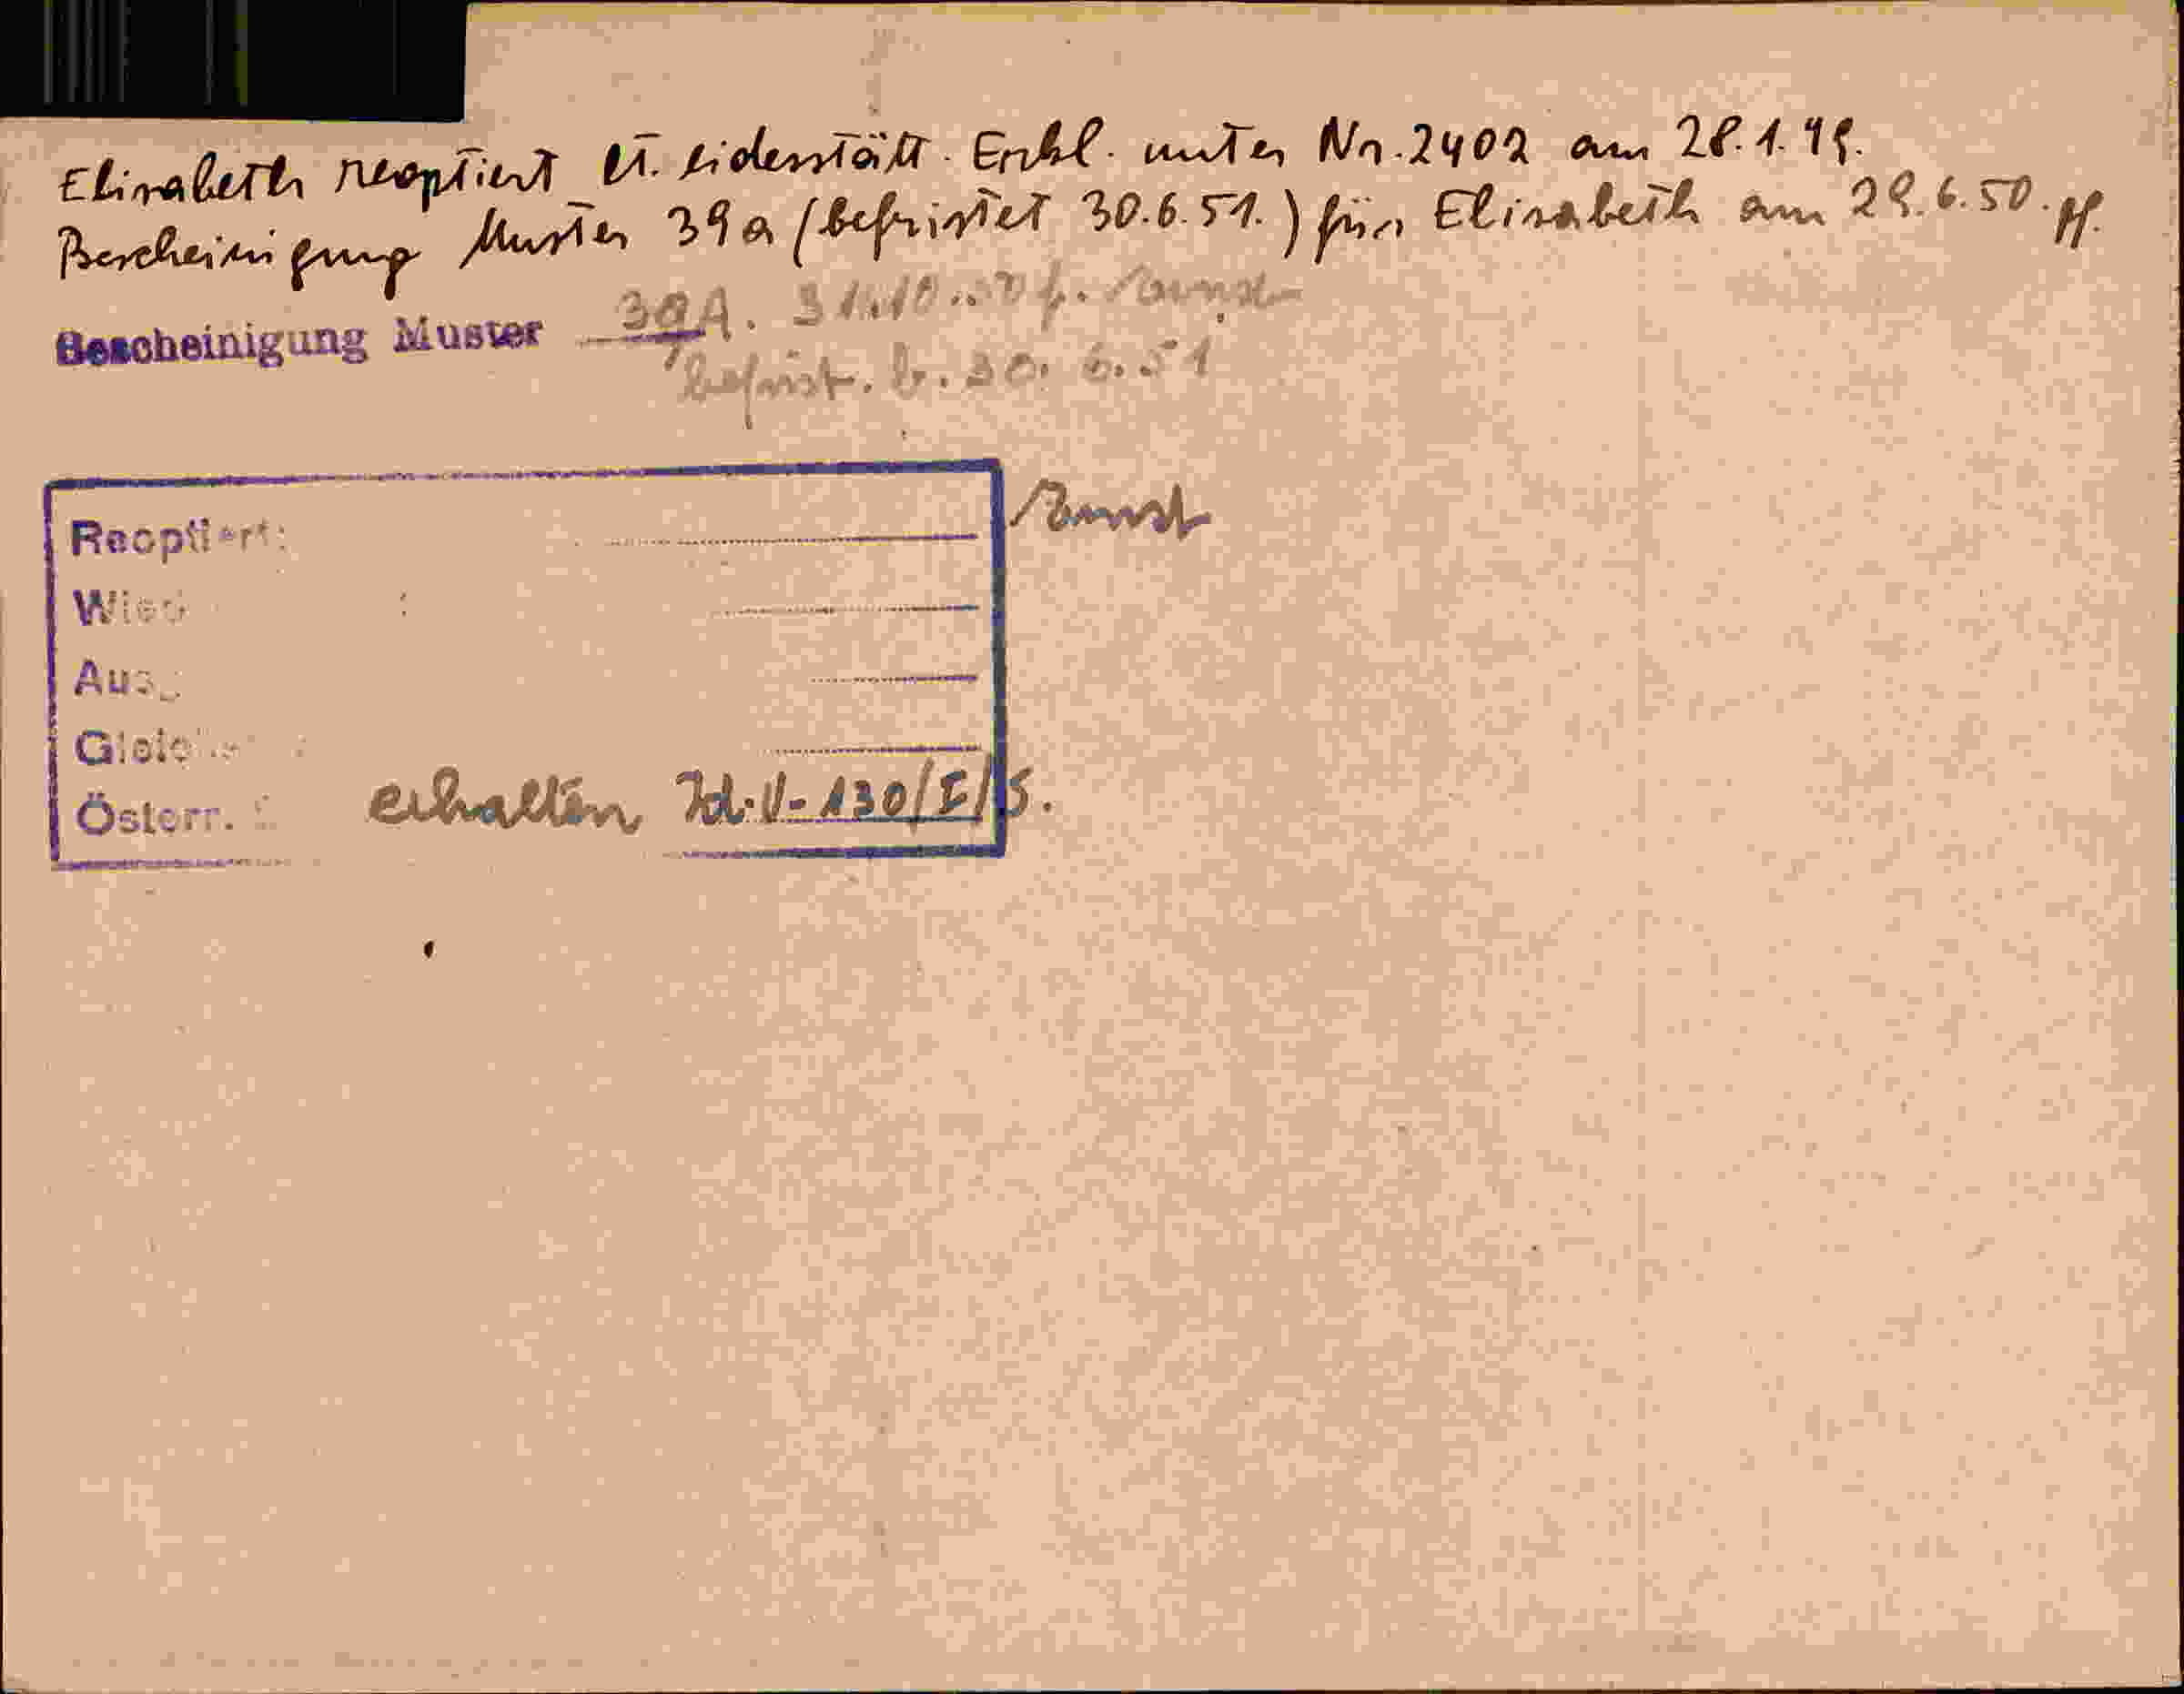 Elisabeth reoptiert lt. eidesstätt. Erkl. unter Nr. 2402 am 28.1.49.
Bescheinigung Muster 39a (befristet 30.6.51.) für Elisabeth am 29.6.50. pf.
Bescheinigung Muster 39A. 31.10.50 f. Ernst
befrist. b. 30. 6. 51
Reoptiert: Ernst
Wied
Aus
Gleich
Österr. erhalten Zl. V-130/I/5.